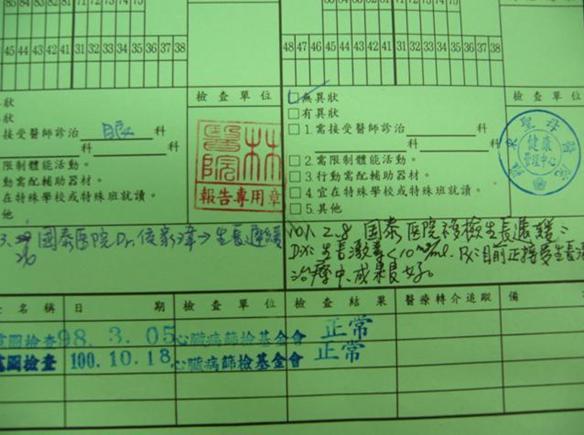 85 84 83 82 81
45 44 43 42 41 31 32 33 34 35 36 37 38
48 47 46 45 44 43 42 41 31 32 33 34 35 36 37 38
異狀
接受醫師診治 眼 科
科
限制體能活動。
動需配輔助器材。
在特殊學校或特殊班就讀。
他
檢查單位
林
醫院
報告專用章
☑無異狀
□有異狀
□1.需接受醫師診治 科
科
□2.需限制體能活動。
□3.行動需配輔助器材。
□4.宜在特殊學校或特殊班就讀。
□5.其他
檢查單位
健康
管理中心
國泰医院Dr.
→生長遲緩
101.2.8 国泰医院複檢生長遲緩:
Dx:生長激素<10 ng/ml. Rx:目前正接受生長激
治療中,成果良好。
名稱 日期 檢查單位 檢查結果 醫療轉介追蹤 備
電圖檢查 98.3.05 心臟病篩檢基金會 正常
電圖檢查 100.10.18 心臟病篩檢基金會 正常